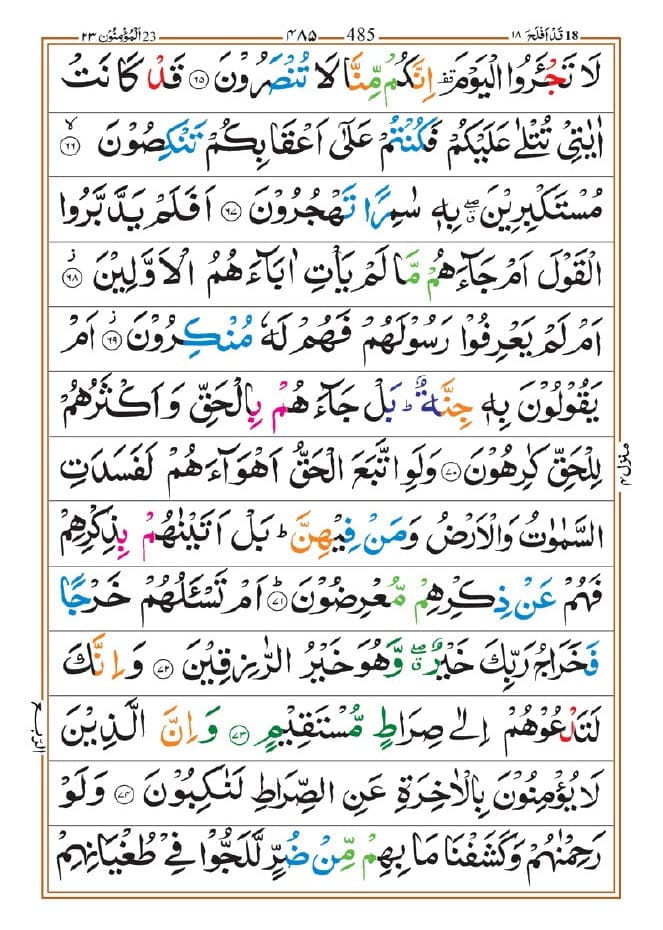 23 اَلْمُؤْمِنُوْن ٢٣ ٤٨٥ 485 18 قَدْ اَفْلَحَ ١٨
لَا تَجْـَٔرُوا الْيَوْمَ ۫ اِنَّكُمْ مِّنَّا لَا تُنْصَرُوْنَ ۝٦٥ قَدْ كَانَتْ
اٰيٰتِيْ تُتْلٰى عَلَيْكُمْ فَكُنْتُمْ عَلٰٓى اَعْقَابِكُمْ تَنْكِصُوْنَ ۝٦٦ ۙ
مُسْتَكْبِرِيْنَ ۖۗ بِهٖ سٰمِرًا تَهْجُرُوْنَ ۝٦٧ اَفَلَمْ يَدَّبَّرُوا
الْقَوْلَ اَمْ جَآءَهُمْ مَّا لَمْ يَاْتِ اٰبَآءَهُمُ الْاَوَّلِيْنَ ۝٦٨ ز
اَمْ لَمْ يَعْرِفُوْا رَسُوْلَهُمْ فَهُمْ لَهٗ مُنْكِرُوْنَ ۝٦٩ ز اَمْ
يَقُوْلُوْنَ بِهٖ جِنَّةٌ ؕ بَلْ جَآءَهُمْ بِالْحَقِّ وَاَكْثَرُهُمْ
لِلْحَقِّ كٰرِهُوْنَ ۝٧٠ وَلَوِ اتَّبَعَ الْحَقُّ اَهْوَآءَهُمْ لَفَسَدَتِ
منزل ٤
السَّمٰوٰتُ وَالْاَرْضُ وَمَنْ فِيْهِنَّ ؕ بَلْ اَتَيْنٰهُمْ بِذِكْرِهِمْ
فَهُمْ عَنْ ذِكْرِهِمْ مُّعْرِضُوْنَ ۝٧١ ؕ اَمْ تَسْـَٔلُهُمْ خَرْجًا
فَخَرَاجُ رَبِّكَ خَيْرٌ ۖۗ وَّهُوَ خَيْرُ الرّٰزِقِيْنَ ۝٧٢ وَاِنَّكَ
لَتَدْعُوْهُمْ اِلٰى صِرَاطٍ مُّسْتَقِيْمٍ ۝٧٣ وَاِنَّ الَّذِيْنَ
الربع
لَا يُؤْمِنُوْنَ بِالْاٰخِرَةِ عَنِ الصِّرَاطِ لَنٰكِبُوْنَ ۝٧٤ وَلَوْ
رَحِمْنٰهُمْ وَكَشَفْنَا مَا بِهِمْ مِّنْ ضُرٍّ لَّلَجُّوْا فِيْ طُغْيَانِهِمْ